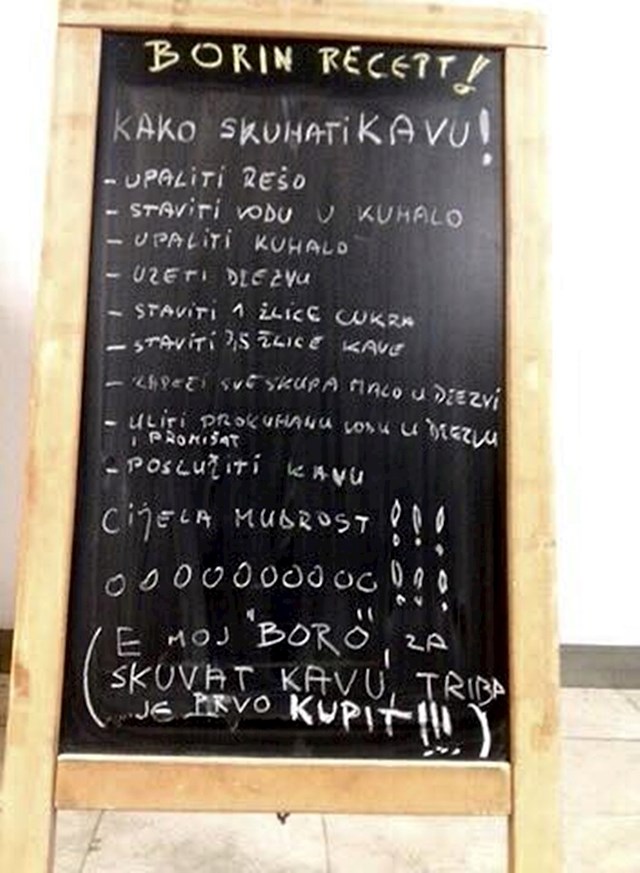 BORIN RECEPT!
KAKO SKUHATI KAVU!
- UPALITI REŠO
- STAVITI VODU U KUHALO
- UPALITI KUHALO
- UZETI DŽEZVU
- STAVITI 1 ŽLICE CUKRA
- STAVITI 3,5 ŽLICE KAVE
- ZAPEĆI SVE SKUPA MALO U DŽEZVI
- ULITI PROKUHANU VODU U DŽEZVU
I PROMIŠAT
- POSLUŽITI KAVU
CIJELA MUDROST !!!
OOOOOOOOOO !!!
(E MOJ "BORO", ZA
SKUVAT KAVU, TRIBA
JE PRVO KUPIT!!!)